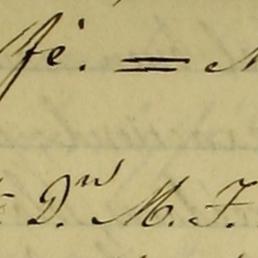 fè. =
D.n M. F.